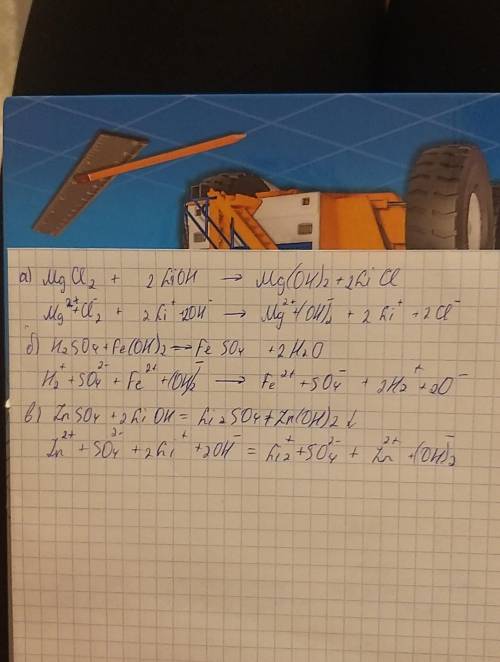 а) MgCl₂ + 2LiOH → Mg(OH)₂ + 2LiCl
Mg²⁺+Cl⁻₂ + 2Li⁺+2OH⁻ → Mg²⁺+(OH)⁻₂ + 2Li⁺ + 2Cl⁻
б) H₂SO₄ + Fe(OH)₂ → FeSO₄ + 2H₂O
H₂⁺ + SO₄²⁻ + Fe²⁺ + (OH)₂⁻ → Fe²⁺ + SO₄⁻ + 2H₂⁺ + 2O⁻
в) ZnSO₄ + 2LiOH = Li₂SO₄ + Zn(OH)₂↓
Zn²⁺ + SO₄²⁻ + 2Li⁺ + 2OH⁻ = Li₂⁺ + SO₄²⁻ + Zn²⁺ + (OH)₂⁻